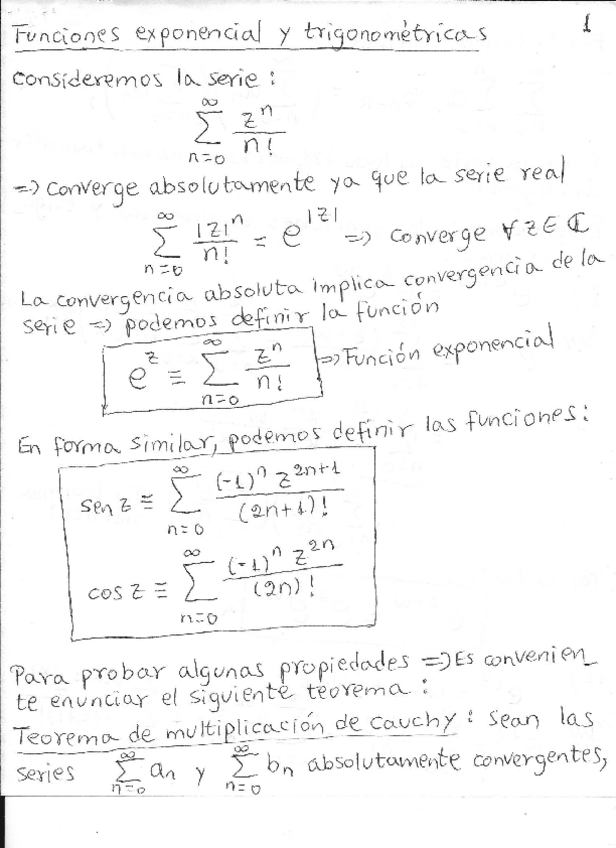 Funciones exponencial y trigonométricas 1
consideremos la serie:
∞
∑ zⁿ/n!
n=0
=> Converge absolutamente ya que la serie real
∞
∑ |z|ⁿ/n! = e^|z| => converge ∀ z ∈ ℂ
n=0
La convergencia absoluta implica convergencia de la
serie => podemos definir la función
∞
e^z ≡ ∑ zⁿ/n! => Función exponencial
n=0
En forma similar, podemos definir las funciones:
∞
sen z ≡ ∑ (-1)ⁿ z^(2n+1)/(2n+1)!
n=0
∞
cos z ≡ ∑ (-1)ⁿ z^(2n)/(2n)!
n=0
Para probar algunas propiedades => Es convenien
te enunciar el siguiente teorema:
Teorema de multiplicación de Cauchy: sean las
series ∑_(n=0)^∞ aₙ y ∑_(n=0)^∞ bₙ absolutamente convergentes,